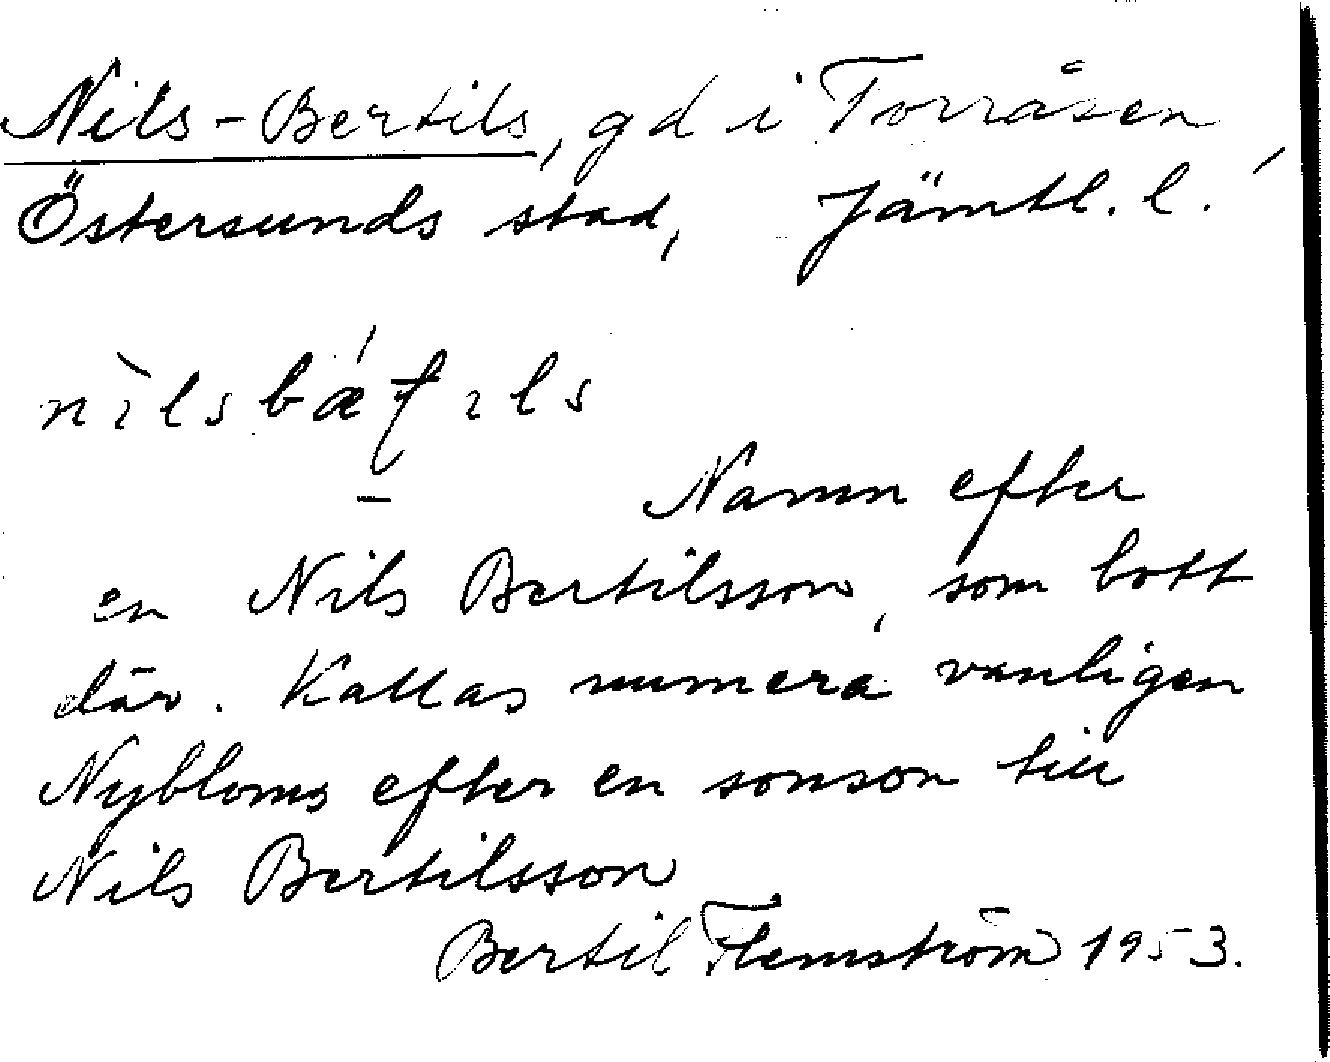 Nils-Bertils, gd i Torråsen,
Östersunds stad, Jämtl. l.
Namn efter
en Nils Bertilsson, som bott
där. Kallas numera vanligen
Nybloms efter en sonson till
Nils Bertilsson
Bertil Flemström 1953.